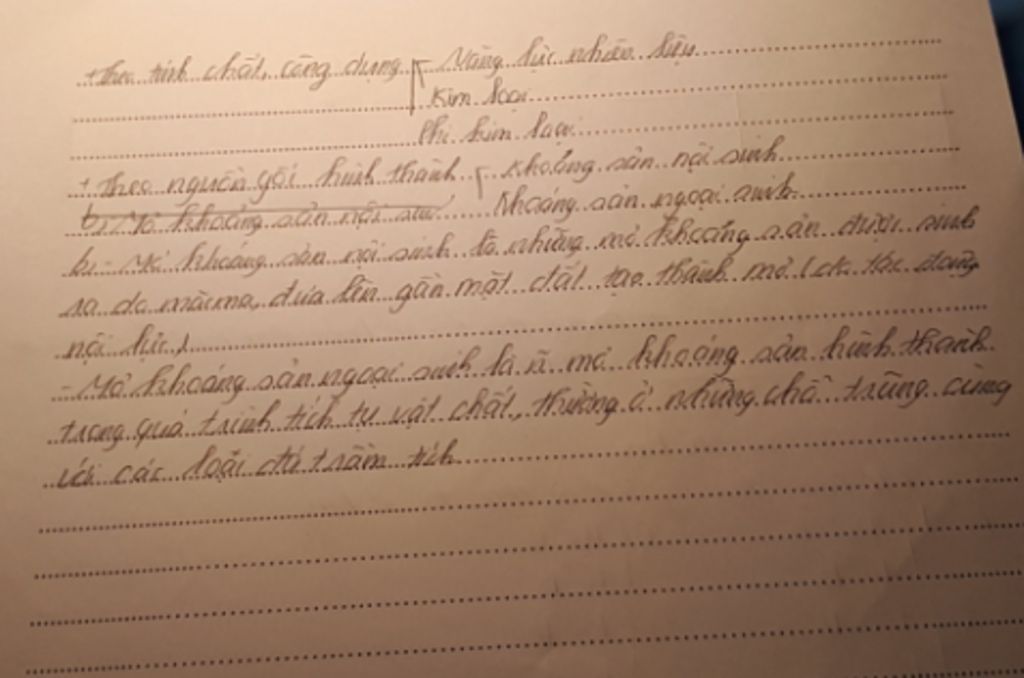 + Theo tính chất, công dụng Năng lực nhiên liệu
Kim loại
Phi kim loại
+ Theo nguồn gốc hình thành Khoáng sản nội sinh
b, Mỏ khoáng sản nội Khoáng sản ngoại sinh
b, - Mỏ khoáng sản nội sinh là những mỏ khoáng sản được sinh
ra do măcma, đưa lên gần mặt đất tạo thành mỏ (do tác động
nội lực)
- Mỏ khoáng sản ngoại sinh là n~ mỏ khoáng sản hình thành
trong quá trình tích tụ vật chất, thường ở những chỗ trũng cùng
với các loại đá trầm tích